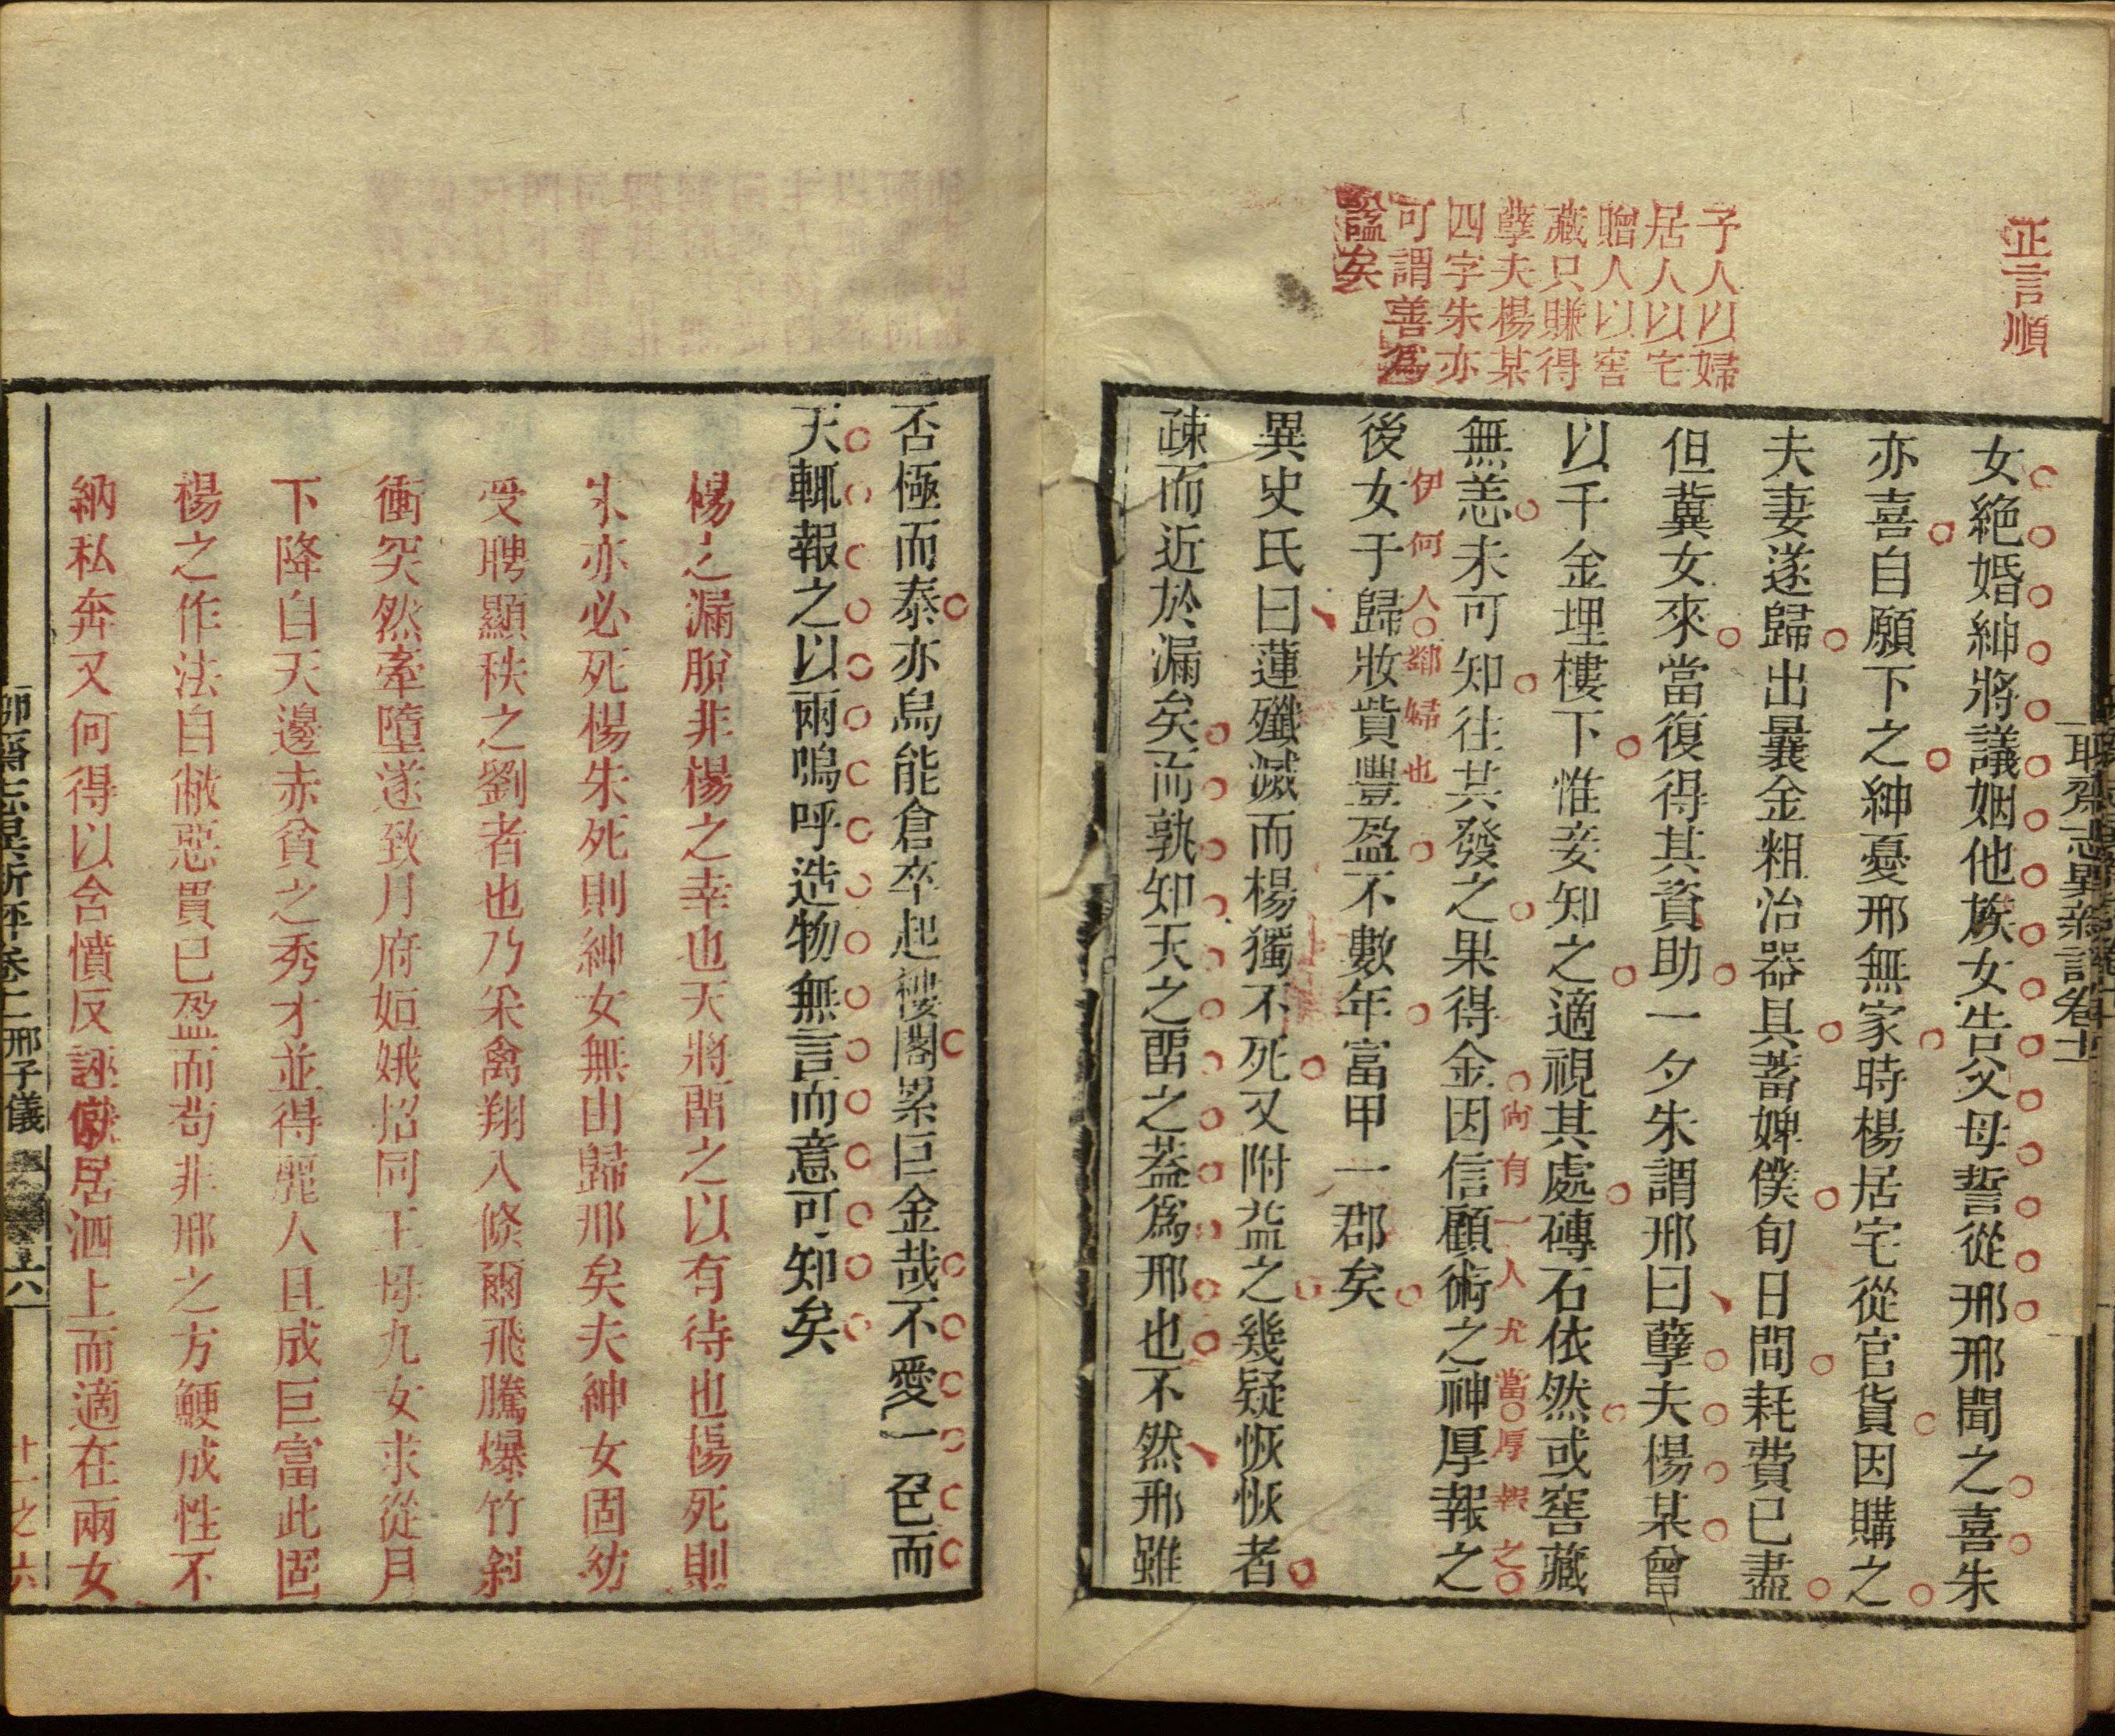 正言順
予人以婦
居人以宅
贈人以窖
藏只賺得
孽夫楊某
四字朱亦
可謂善爲
謚矣
聊齋志異新評卷十一
女絶婚紳將議姻他族女告父母誓從邢邢聞之喜朱
亦喜自願下之紳憂邢無家時楊居宅從官貨因購之
夫妻遂歸出曩金粗治器具蓄婢僕旬日間耗費已盡
但冀女來當復得其資助一夕朱謂邢曰孽夫楊某曾
以千金埋樓下惟妾知之適視其處磚石依然或窖藏
無恙未可知往共發之果得金因信顧術之神厚報之
尚有一人尤當厚報之
後女于歸妝貲豐盈不數年富甲一郡矣
伊何人鄰婦也
異史氏曰蓮殲滅而楊獨不死又附益之幾疑恢恢者
疎而近於漏矣而孰知天之畱之葢爲邢也不然邢雖
否極而泰亦烏能倉卒起樓閣累巨金哉不愛一色而
天輒報之以兩嗚呼造物無言而意可知矣
楊之漏脫非楊之幸也天將畱之以有待也楊死則
朱亦必死楊朱死則紳女無由歸邢矣夫紳女固幼
受聘顯秩之劉者也乃朵禽翔入倐爾飛騰爆竹斜
衝突然牽墮遂致月府姮娥招同王母九女求從月
下降自天邊赤貧之秀才並得麗人且成巨富此固
楊之作法自敝惡貫已盈而苟非邢之方鯁成性不
納私奔又何得以含憤反誣居泗上而適在兩女
聊齋志異新評卷十一邢子儀
六
十一之六